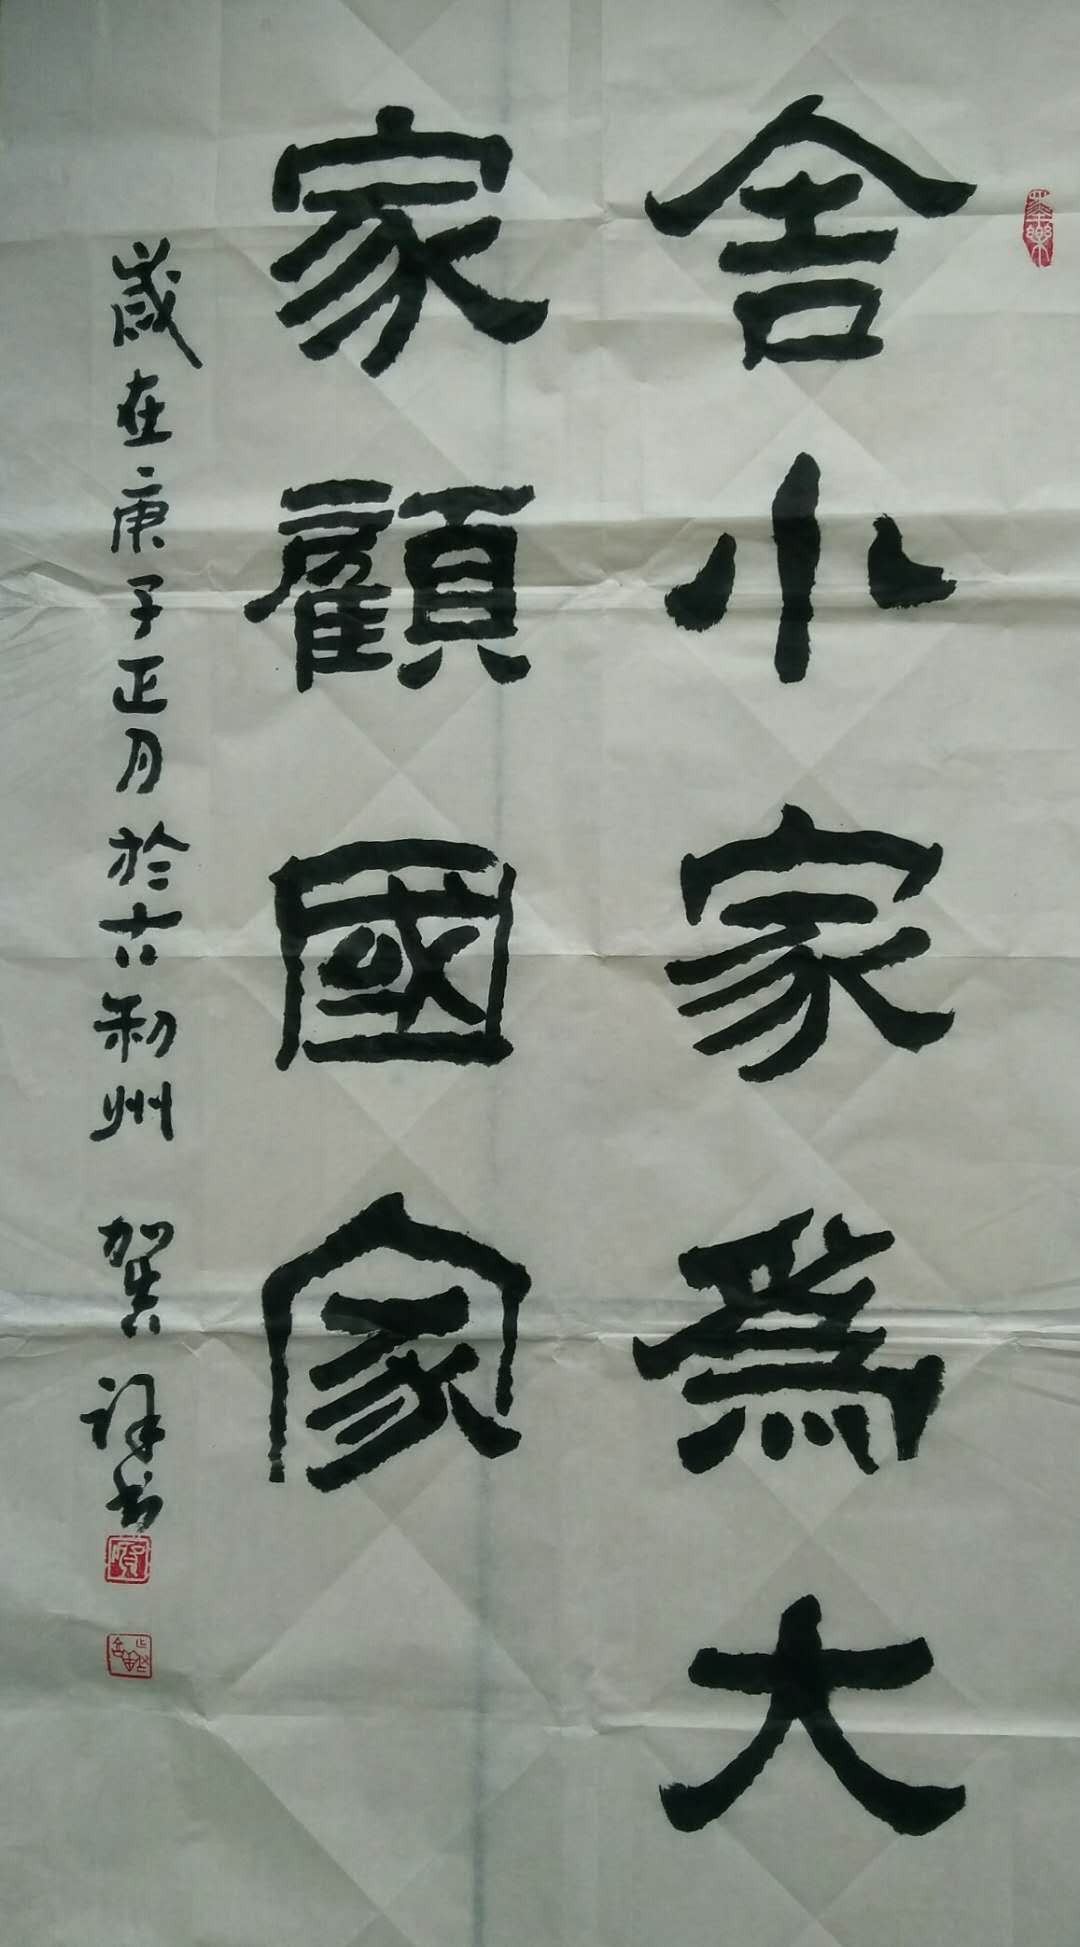 舍小家為大
家顧國家
歲在庚子正月於古利州 賀祥书